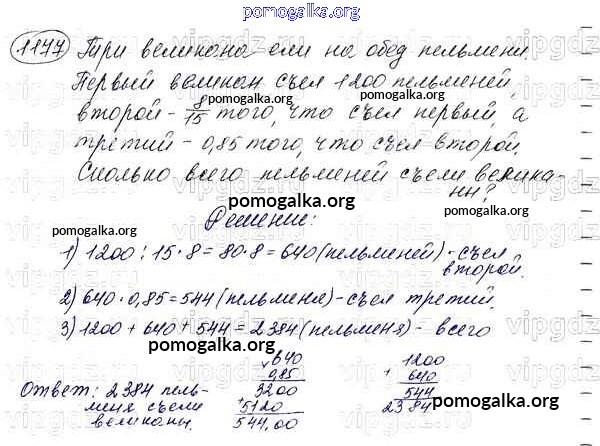 pomogalka.org
1177 Три великана ели на обед пельмени.
Первый великан съел 1200 пельменей,
второй - 8/15 того, что съел первый, а
третий - 0,85 того, что съел второй.
Сколько всего пельменей съели велика-
ны?
pomogalka.org
pomogalka.org
pomogalka.org
pomogalka.org
Решение:
1) 1200 : 15 · 8 = 80 · 8 = 640 (пельменей) - съел
второй.
pomogalka.org
2) 640 · 0,85 = 544 (пельменя) - съел третий.
3) 1200 + 640 + 544 = 2384 (пельменя) - всего
pomogalka.org
640
× 0,85
3200
+ 5120
544,00
1200
+ 640
544
2384
Ответ: 2384 пель-
меня съели
великаны.
pomogalka.org
pomogalka.org